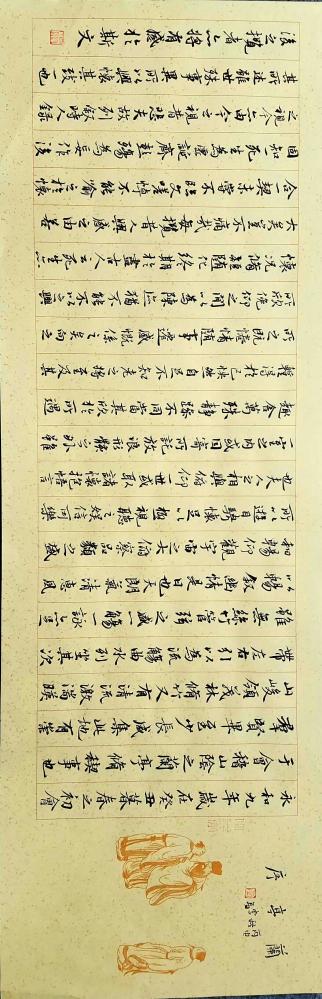 蘭亭序
永和九年歲在癸丑暮春之初會
于會稽山陰之蘭亭脩禊事也
羣賢畢至少長咸集此地有崇
山峻領茂林脩竹又有清流激湍暎
帶左右引以為流觴曲水列坐其次
雖無絲竹管弦之盛一觴一詠亦足
以暢敘幽情是日也天朗氣清惠風
和暢仰觀宇宙之大俯察品類之盛
所以遊目騁懷足以極視聽之娛信可樂
也夫人之相與俯仰一世或取諸懷抱悟言
一室之內或因寄所託放浪形骸之外雖
趣舍萬殊靜躁不同當其欣於所遇
暫得於己怏然自足不知老之將至及其
所之既惓情隨事遷感慨係之矣向之
所欣俛仰之間以為陳迹猶不能不以之興
懷況脩短隨化終期於盡古人云死生亦
大矣豈不痛哉每攬昔人興感之由若
合一契未嘗不臨文嗟悼不能喻之於懷
固知一死生為虛誕齊彭殤為妄作後
之視今亦由今之視昔悲夫故列敘時人錄
其所述雖世殊事異所以興懷其致一也
後之攬者亦將有感於斯文